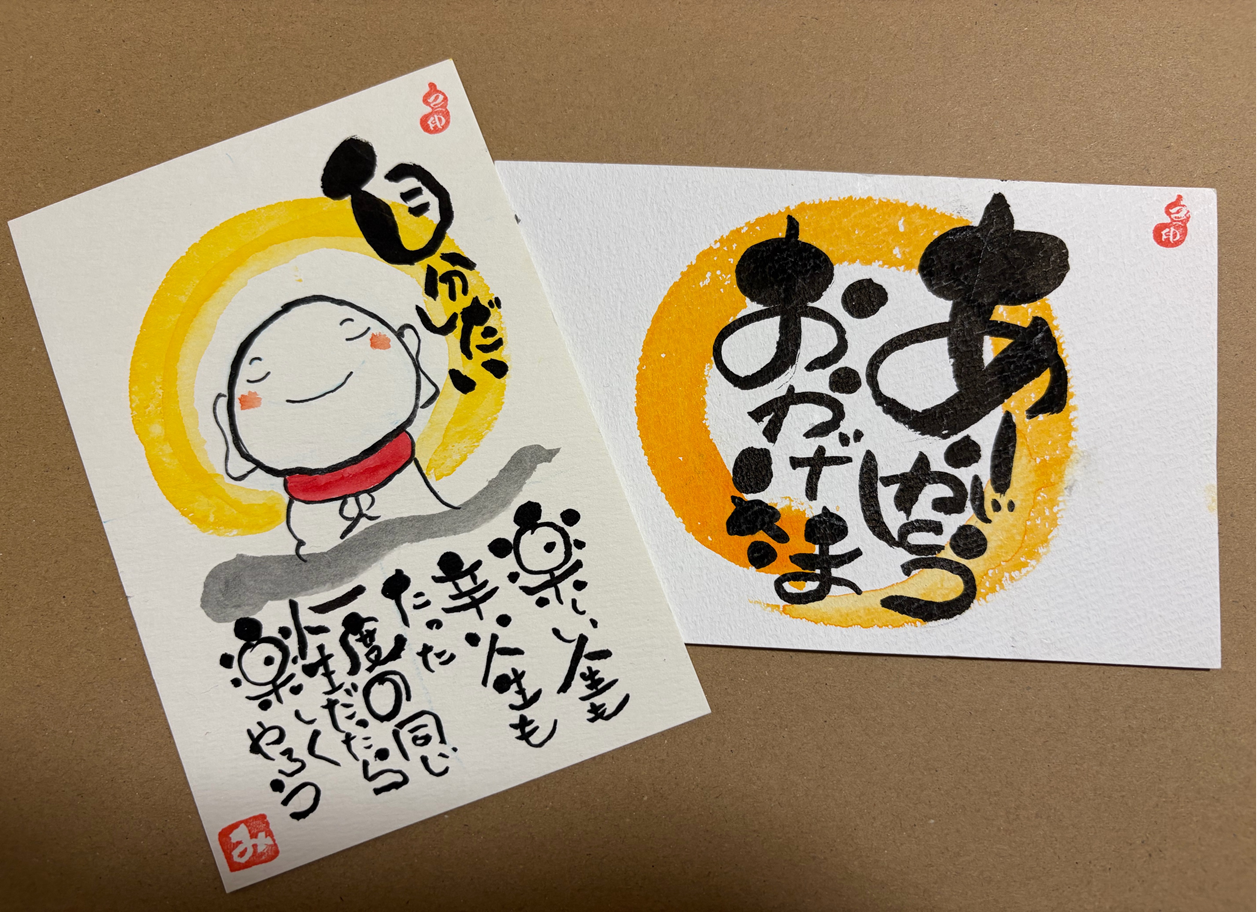 自分しだい
楽しい人生も
辛い人生も
たった
一度の同じ
人生だったら
楽しく
やろう
み
ありがとう
おかげさま